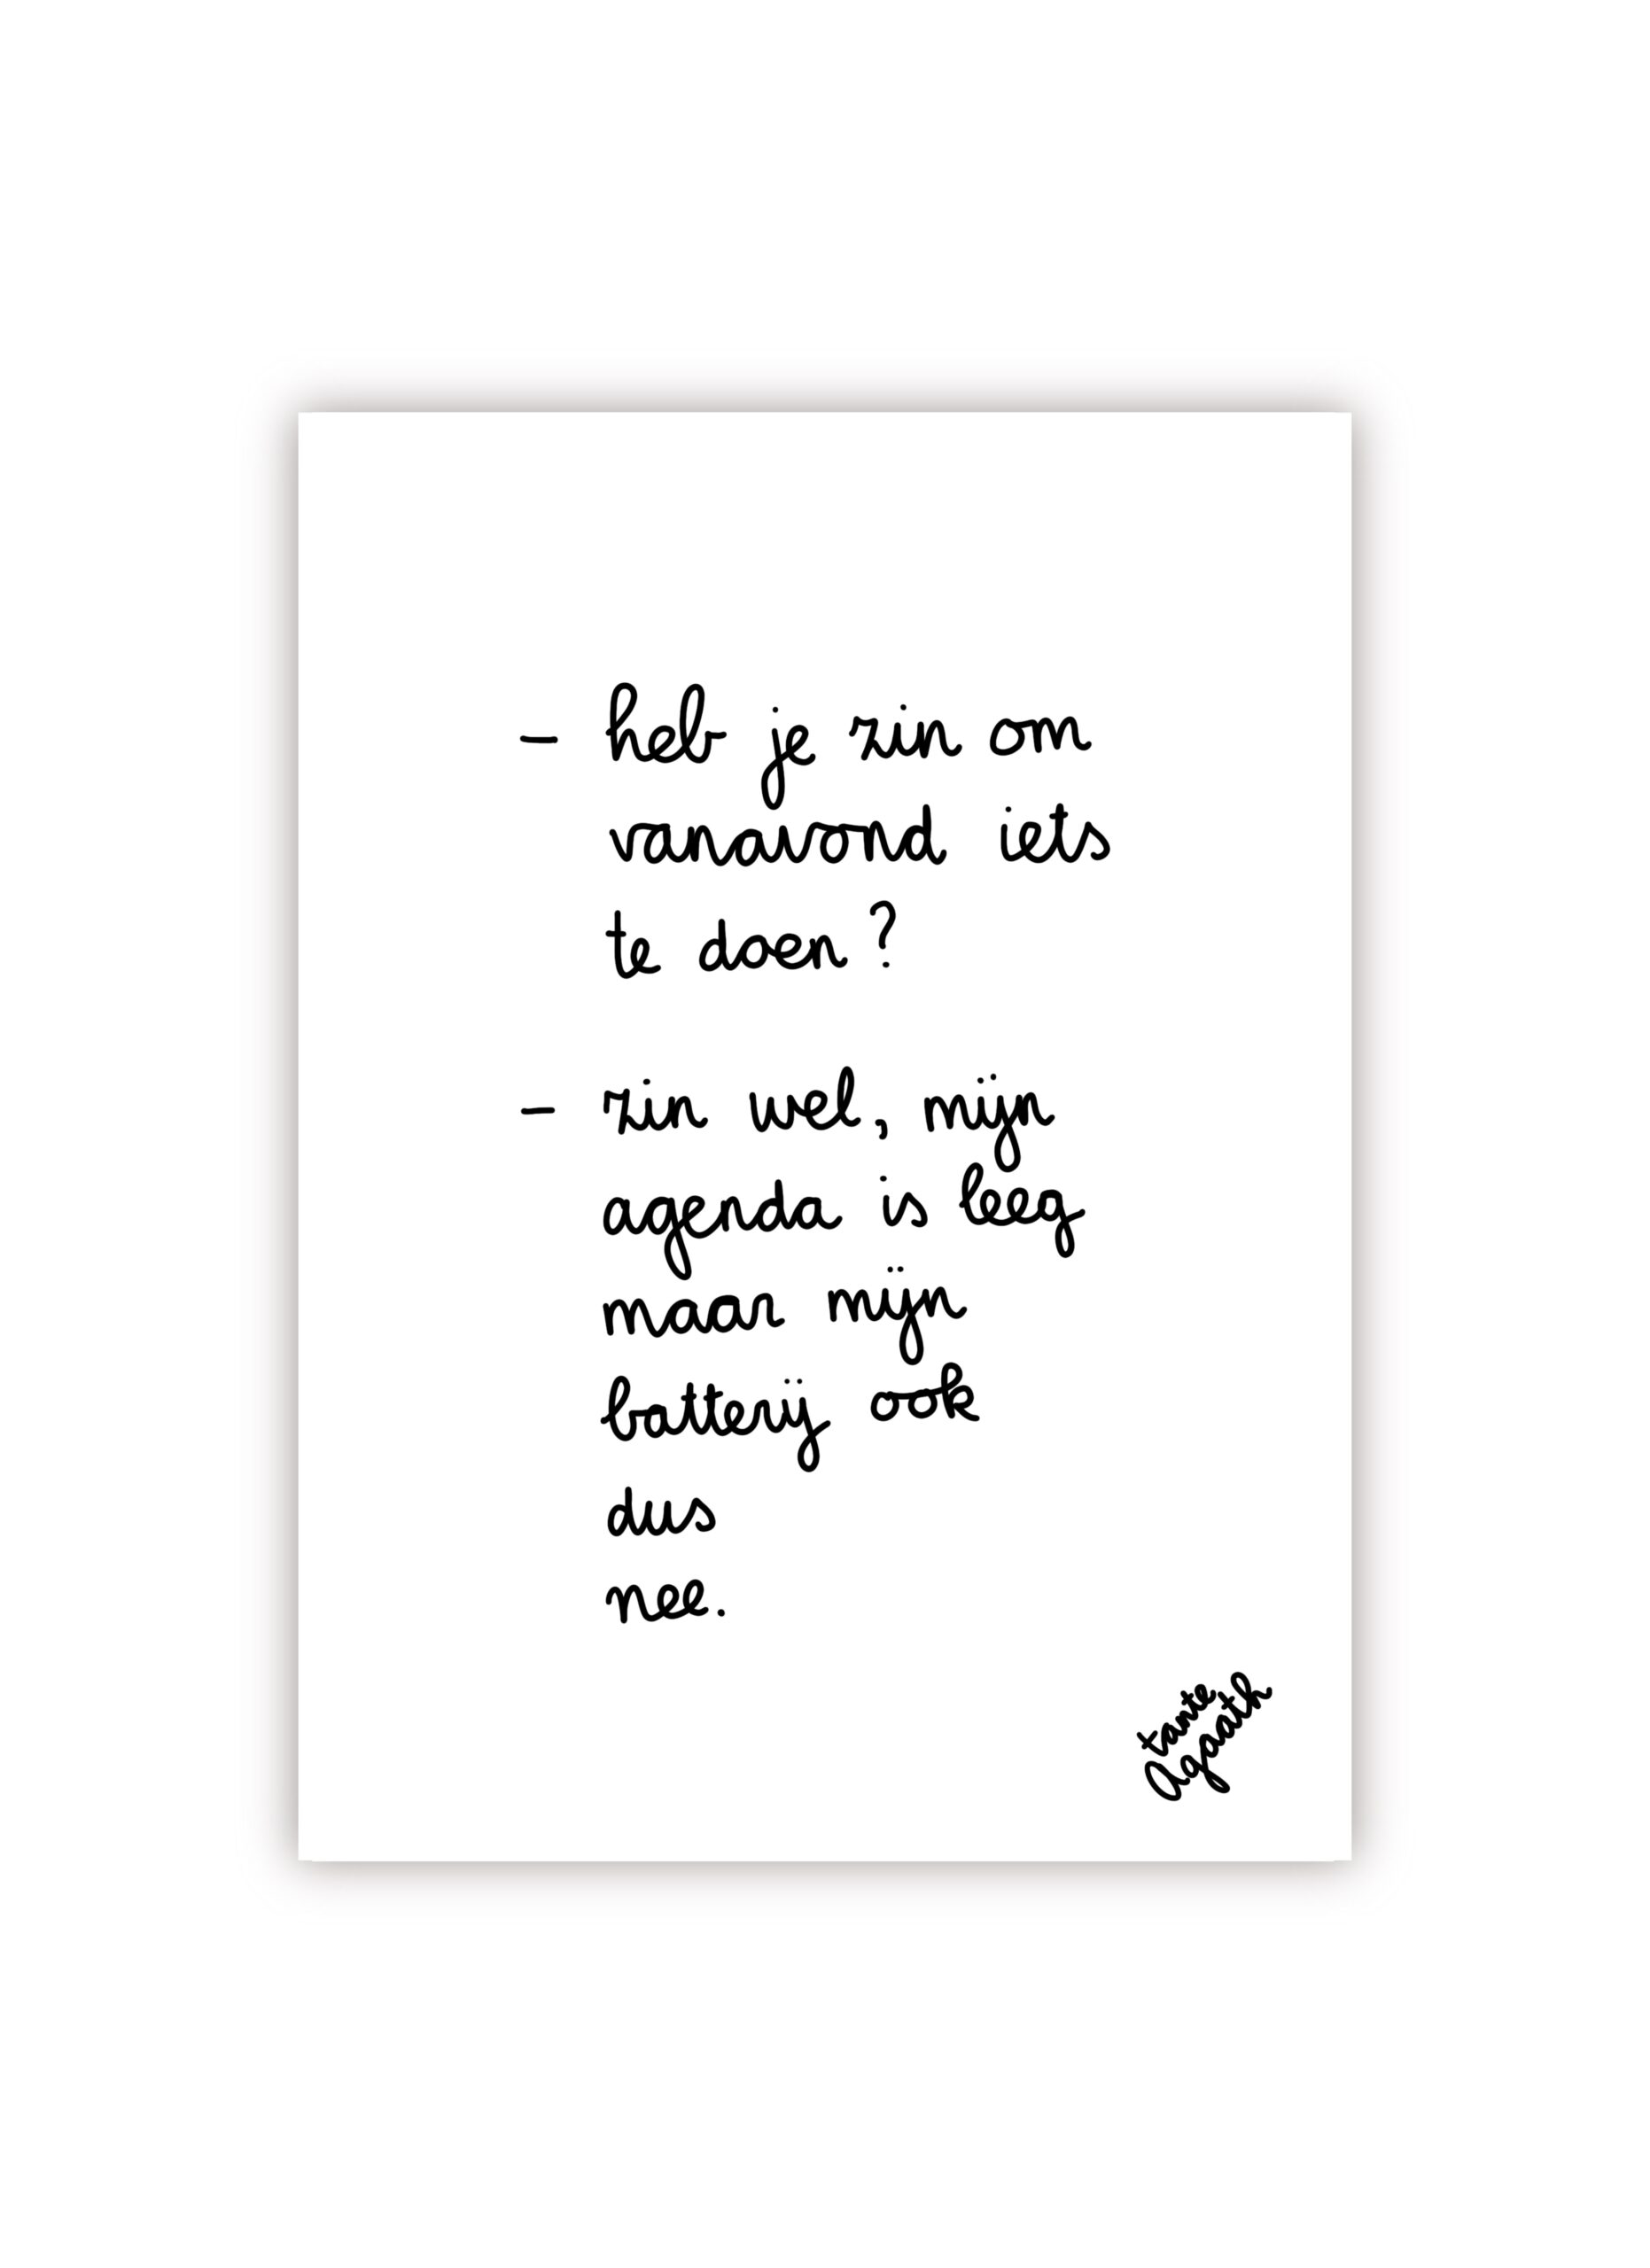 - heb je zin om
vanavond iets
te doen?
- zin wel, mijn
agenda is leeg
maar mijn
batterij ook
dus
nee.
tante
Agaath